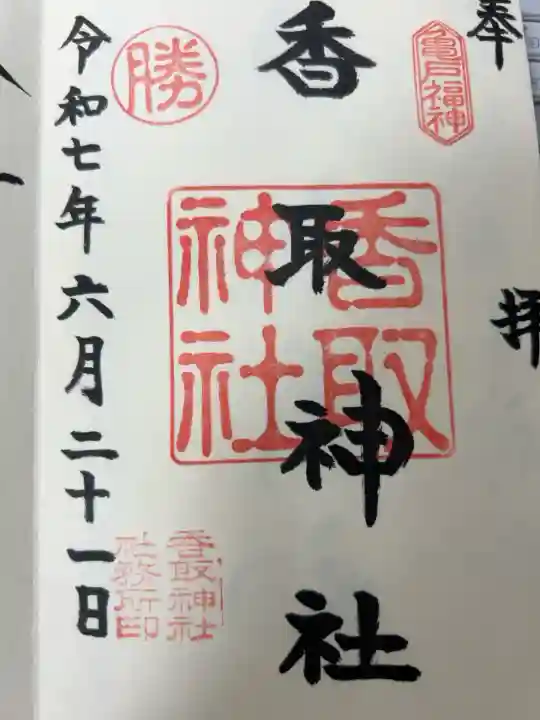 奉拝
亀戸福神
香取神社
香取
神社
勝
香取神社
社務所印
令和七年六月二十一日